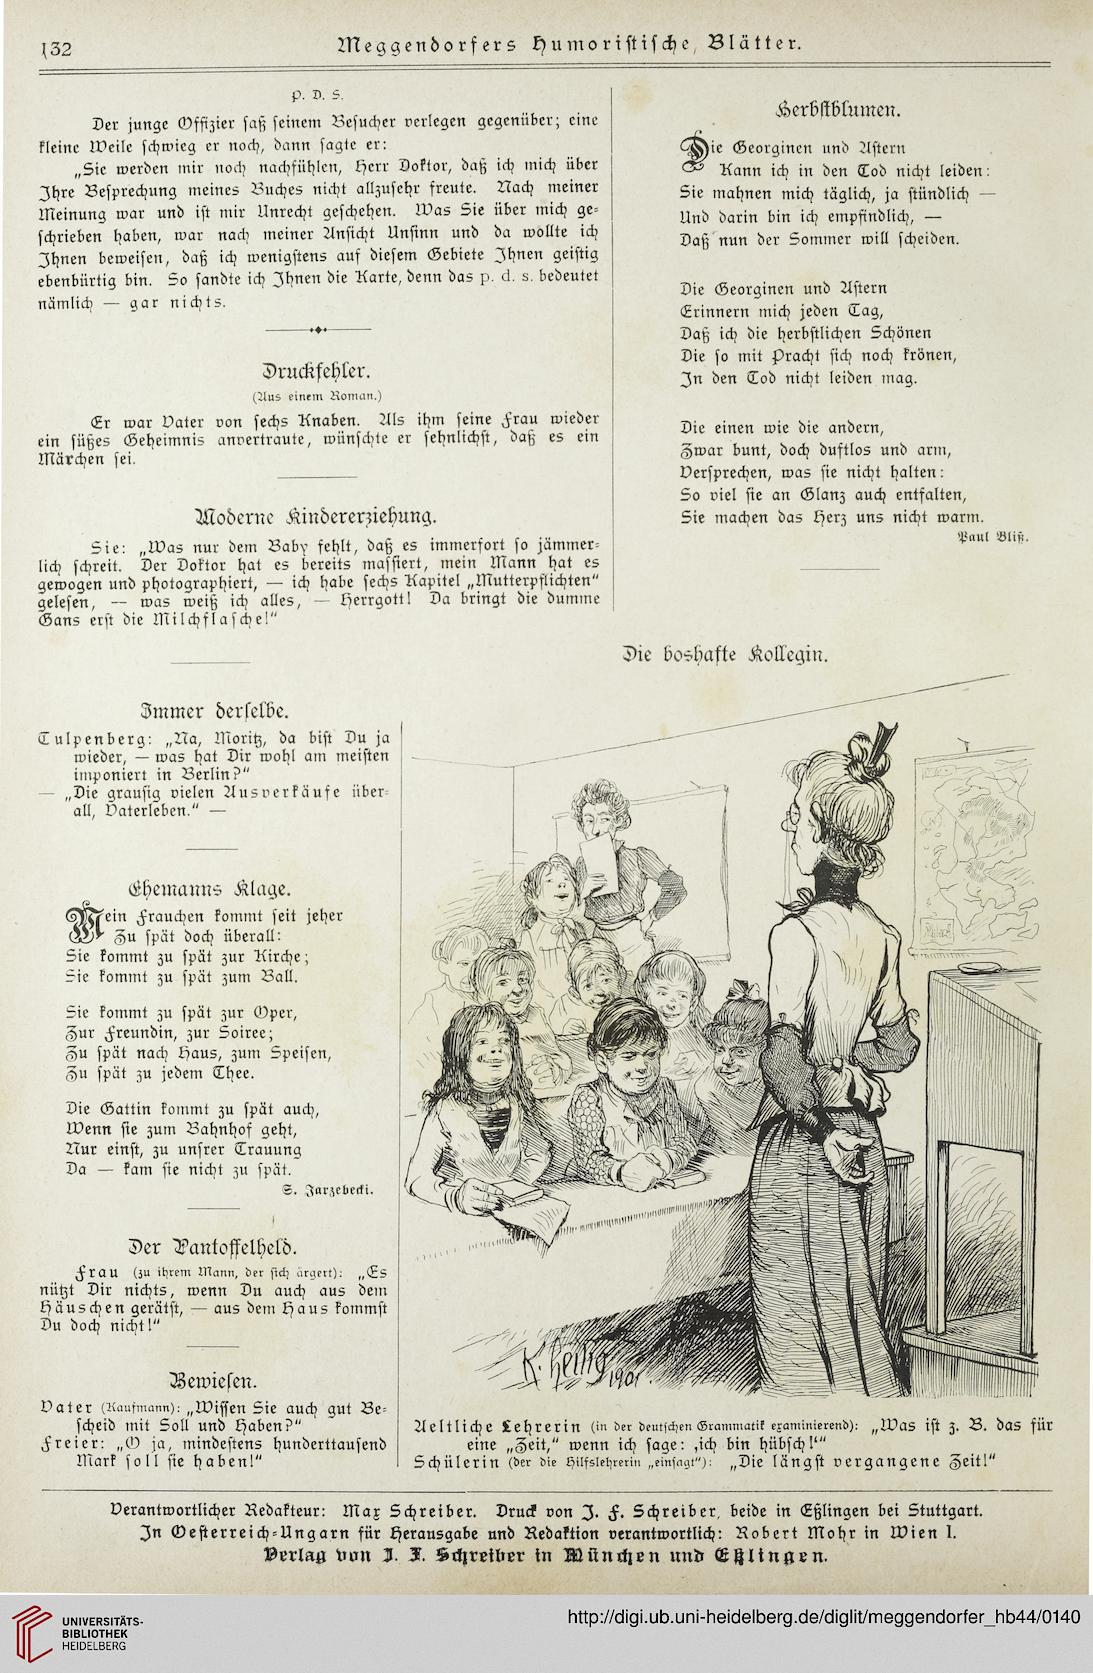 132
Meggendorfers Humoristische Blätter.
P. D. S.
Der junge Offizier saß seinem Besucher verlegen gegenüber; eine
kleine Weile schwieg er noch, dann sagte er:
„Sie werden mir noch nachfühlen, Herr Doktor, daß ich mich über
Ihre Besprechung meines Buches nicht allzusehr freute. Nach meiner
Meinung war und ist mir Unrecht geschehen. Was Sie über mich ge-
schrieben haben, war nach meiner Ansicht Unsinn und da wollte ich
Ihnen beweisen, daß ich wenigstens auf diesem Gebiete Ihnen geistig
ebenbürtig bin. So sandte ich Ihnen die Karte, denn das p. d. s. bedeutet
nämlich — gar nichts.
Druckfehler.
(Aus einem Roman.)
Er war Vater von sechs Knaben. Als ihm seine Frau wieder
ein süßes Geheimnis anvertraute, wünschte er sehnlichst, daß es ein
Märchen sei.
Moderne Kindererziehung.
Sie: „Was nur dem Baby fehlt, daß es immerfort so jämmer-
lich schreit. Der Doktor hat es bereits massiert, mein Mann hat es
gewogen und photographiert, — ich habe sechs Kapitel „Mutterpflichten“
gelesen, — was weiß ich alles, — Herrgott! Da bringt die dumme
Gans erst die Milchflasche!“
Immer derselbe.
Tulpenberg: „Na, Moritz, da bist Du ja
wieder, — was hat Dir wohl am meisten
imponiert in Berlin?“
— „Die grausig vielen Ausverkäufe über-
all, Vaterleben.“ —
Ehemanns Klage.
Mein Frauchen kommt seit jeher
Zu spät doch überall:
Sie kommt zu spät zur Kirche;
Sie kommt zu spät zum Ball.
Sie kommt zu spät zur Oper,
Zur Freundin, zur Soiree;
Zu spät nach Haus, zum Speisen,
Zu spät zu jedem Thee.
Die Gattin kommt zu spät auch,
Wenn sie zum Bahnhof geht,
Nur einst, zu unsrer Trauung
Da — kam sie nicht zu spät.
S. Jarzebecki.
Der Pantoffelheld.
Frau (zu ihrem Mann, der sich ärgert): „Es
nützt Dir nichts, wenn Du auch aus dem
Häuschen gerätst, — aus dem Haus kommst
Du doch nicht!“
Bewiesen.
Vater (Kaufmann): „Wissen Sie auch gut Be-
scheid mit Soll und Haben?“
Freier: „O ja, mindestens hunderttausend
Mark soll sie haben!“
Herbstblumen.
Die Georginen und Astern
Kann ich in den Tod nicht leiden:
Sie mahnen mich täglich, ja stündlich —
Und darin bin ich empfindlich, —
Daß nun der Sommer will scheiden.
Die Georginen und Astern
Erinnern mich jeden Tag,
Daß ich die herbstlichen Schönen
Die so mit Pracht sich noch krönen,
In den Tod nicht leiden mag.
Die einen wie die andern,
Zwar bunt, doch duftlos und arm,
Versprechen, was sie nicht halten:
So viel sie an Glanz auch entfalten,
Sie machen das Herz uns nicht warm.
Paul Bliß.
Die boshafte Kollegin.
K. Heilig 1901.
Aeltliche Lehrerin (in der deutschen Grammatik examinierend): „Was ist z. B. das für
eine „Zeit,“ wenn ich sage: ‚ich bin hübsch!‘“
Schülerin (der die Hilfslehrerin „einsagt“): „Die längst vergangene Zeit!“
Verantwortlicher Redakteur: Max Schreiber. Druck von J. F. Schreiber, beide in Eßlingen bei Stuttgart.
In Oesterreich-Ungarn für Herausgabe und Redaktion verantwortlich: Robert Mohr in Wien I.
Verlag von J. F. Schreiber in München und Eßlingen.
UNIVERSITÄTS-
BIBLIOTHEK
HEIDELBERG
http://digi.ub.uni-heidelberg.de/diglit/meggendorfer_hb44/0140